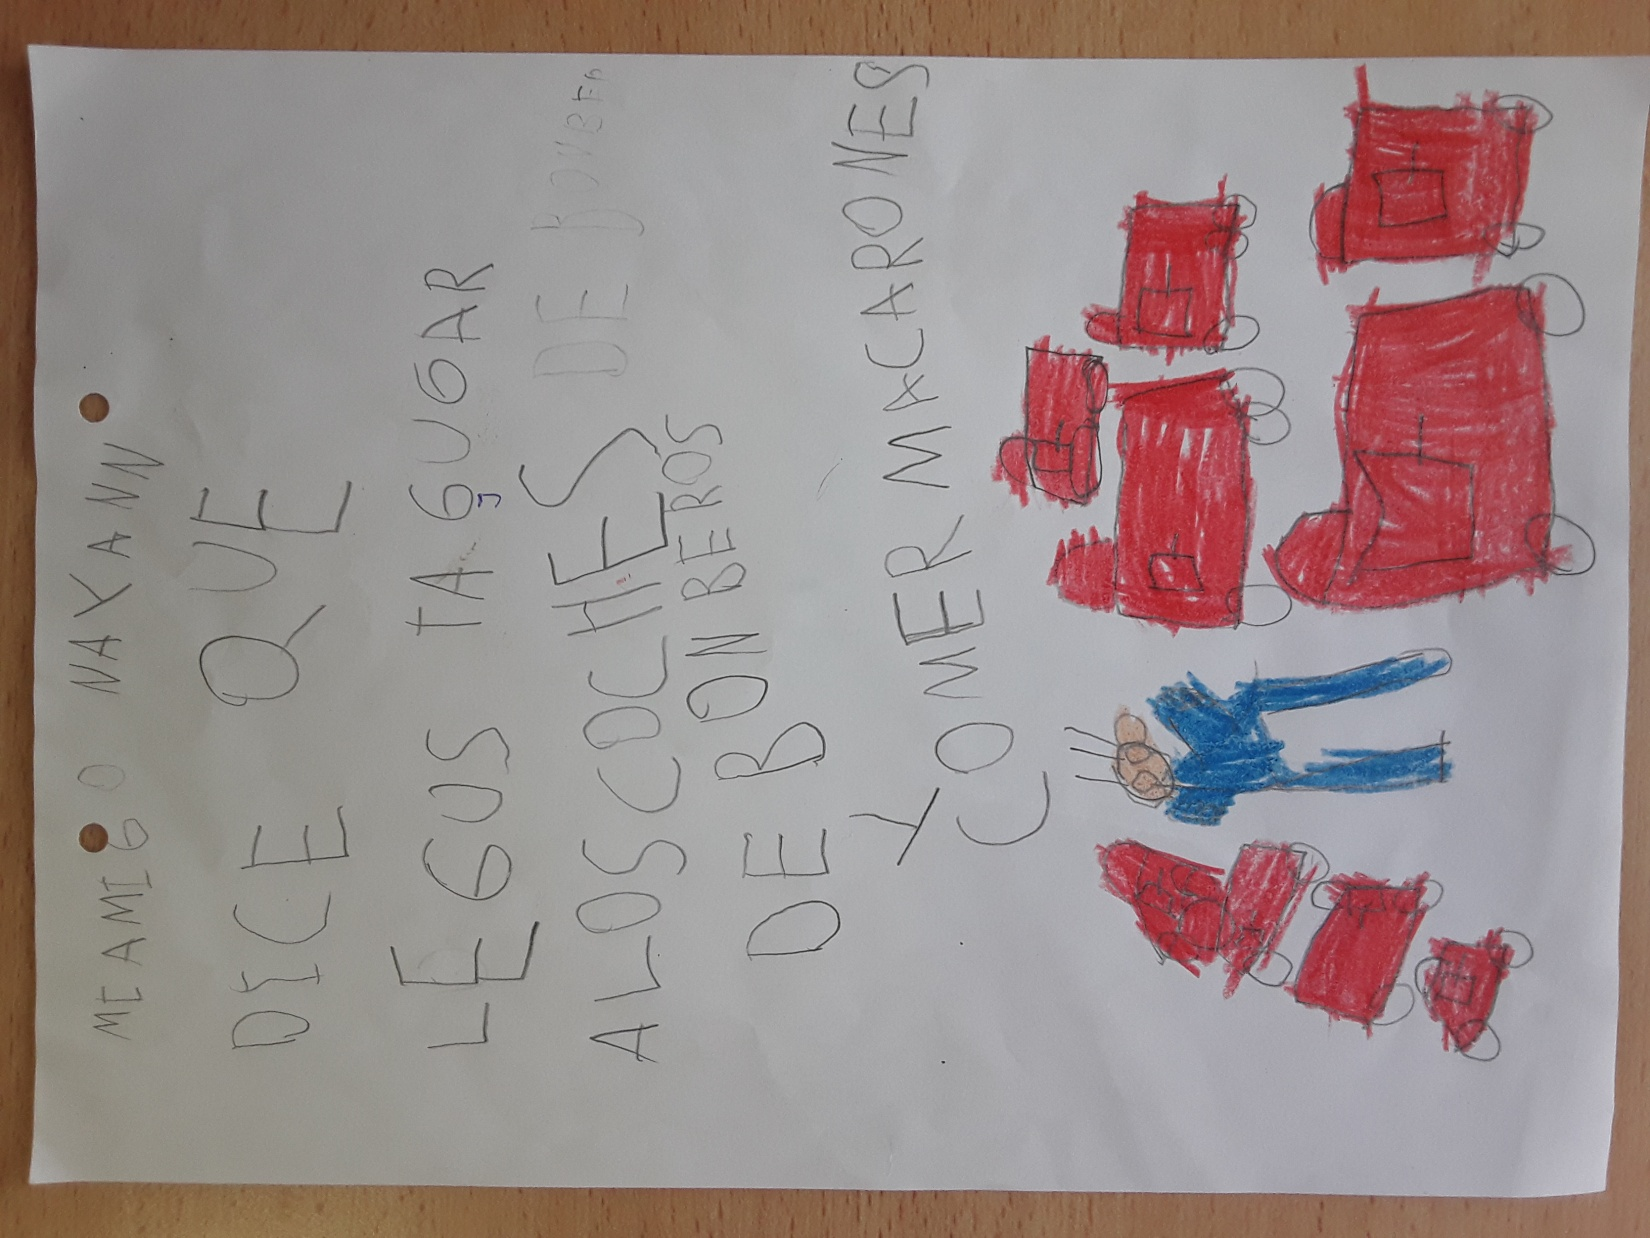 ME AMIGO NAYANN
DICE QUE
LEGUS TAGUGAR
ALOSCOCHES DE BONBER
DE BONBEROS
Y
COMER MACARONES